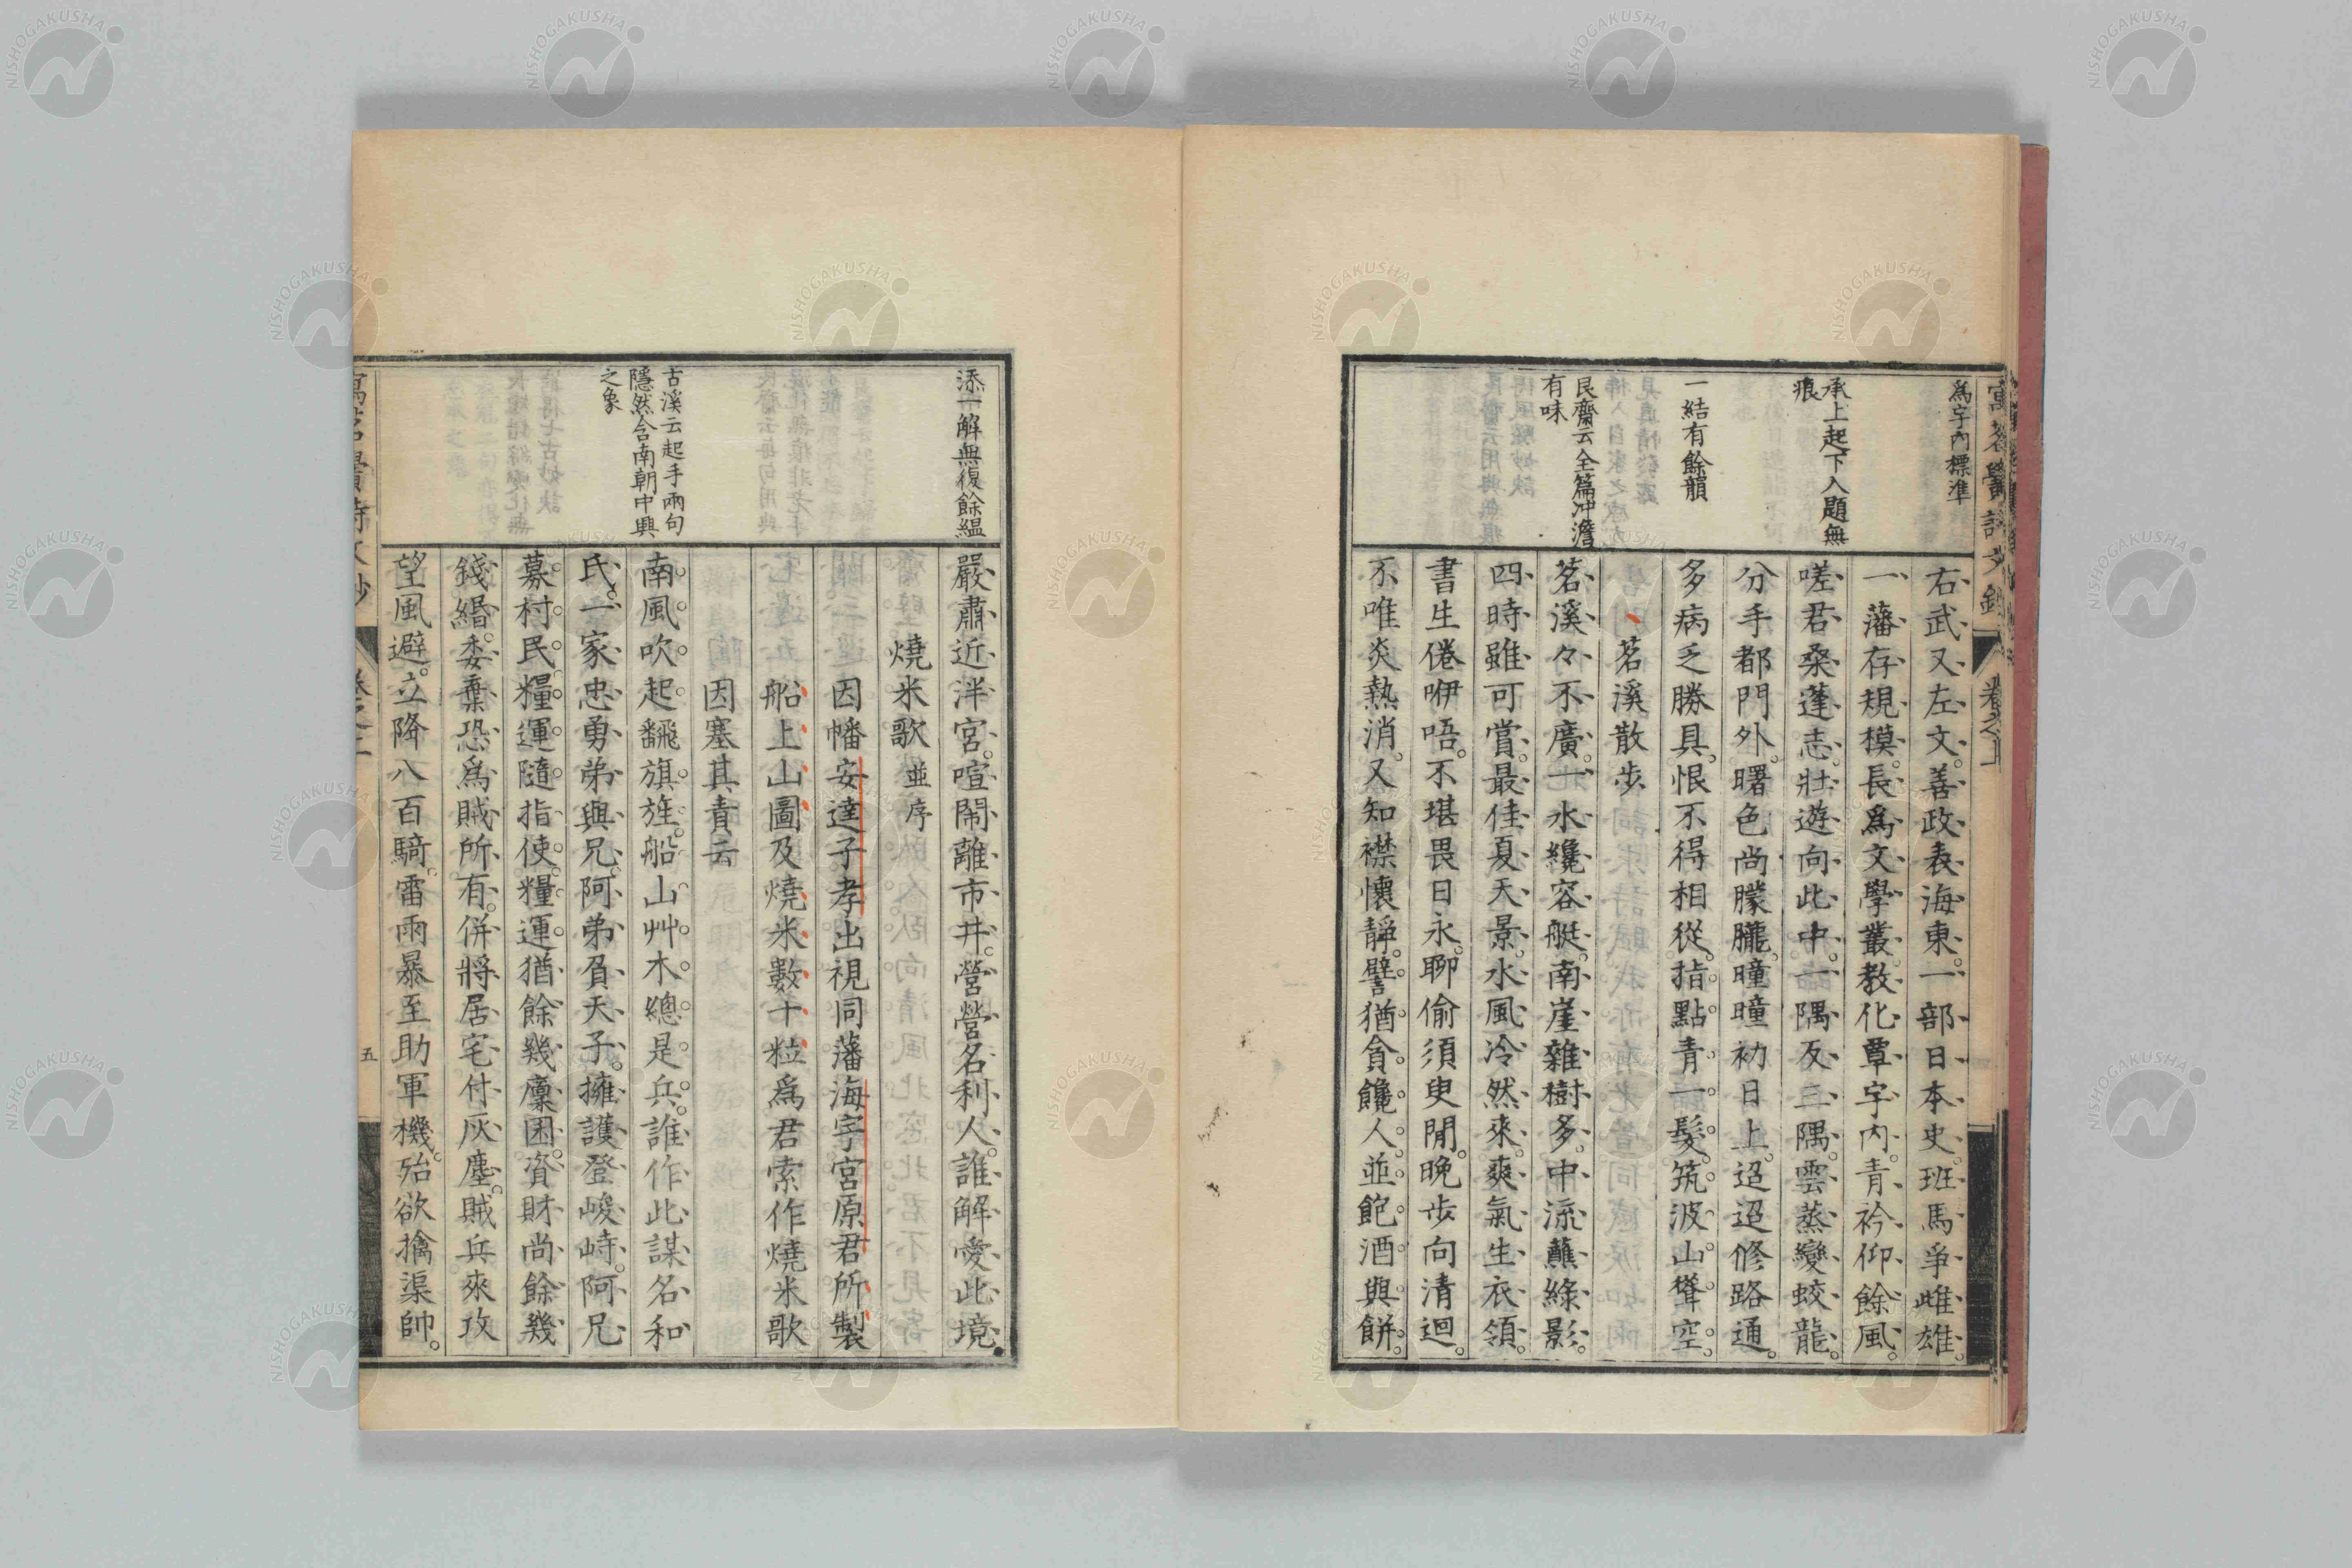 爲字內標準
承上起下入題無
痕
一結有餘韻
艮齋云全篇冲澹
有味
右武又左文。善政表海東。一部日本史班馬爭雌雄。
一藩存規模。長爲文學叢教化覃宇內。青衿仰餘風。
嗟君桑蓬志。壯遊向此中。一隅反三隅。雲蒸變蛟龍。
分手都門外。曙色尚朦朧。曈曈初日上。迢迢修路通。
多病乏勝具。恨不得相從。指點青一髮。筑波山聳空。
茗溪散步
茗溪々不廣。一水纔容艇。南崖雜樹多。中流蘸綠影。
四時雖可賞。最佳夏天景。水風冷然來。爽氣生衣領。
書生倦咿唔。不堪畏日永。聊偷須臾閒。晚步向清迴。
不唯炎熱消。又知襟懷靜。譬猶貪饞人。並飽酒與餅。
添一解無復餘緼
古溪云起手兩句
隱然含南朝中興
之象
嚴肅近泮宮。喧鬧離市井。營營名利人。誰解愛此境。
燒米歌 並序
因幡安達子孝出視同藩海宇宮原君所製
船上山圖及燒米數十粒爲君索作燒米歌
因塞其責云
南風吹起飜旗旌。船山艸木總是兵。誰作此謀名和
氏。一家忠勇弟與兄。阿弟負天子。擁護登峻峙。阿兄
募村民。糧運隨指使。糧運猶餘幾廩囷。資財尚餘幾
錢緡。委棄恐爲賊所有。併將居宅付灰塵。賊兵來攻
望風避。立降八百騎。雷雨暴至助軍機。殆欲擒渠帥。
五